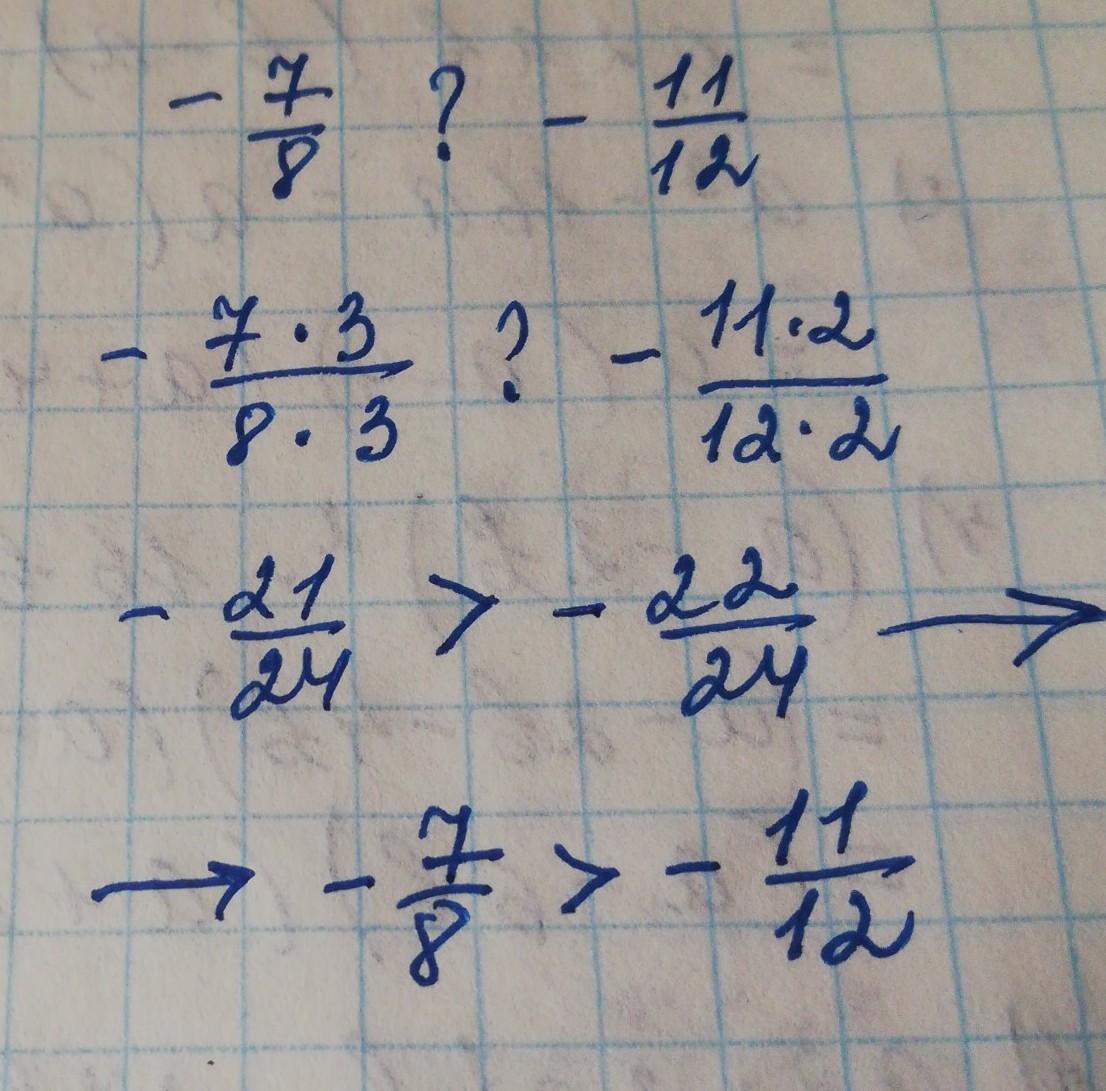 - 7/8 ? - 11/12
- 7·3/8·3 ? - 11·2/12·2
- 21/24 > - 22/24 →
→ - 7/8 > - 11/12